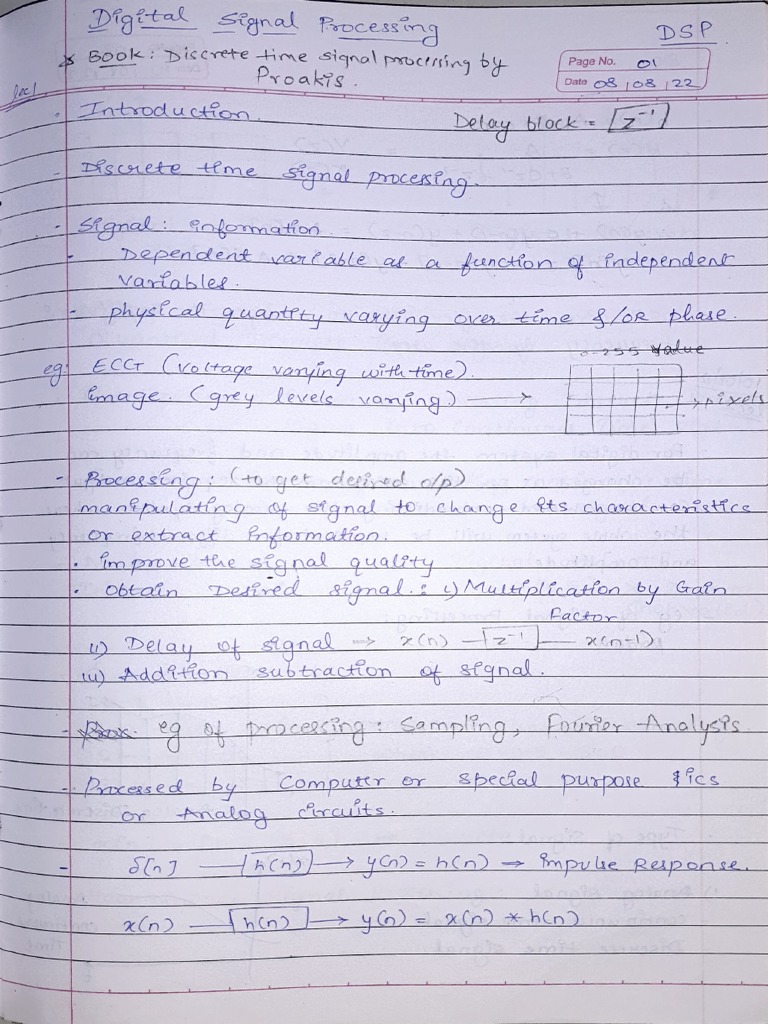 Digital Signal Processing
DSP
* Book: Discrete time signal processing by
Proakis.
Page No. 01
Date 08 08 22
Introduction.
Delay block = [z⁻¹]
- Discrete time signal processing.
- Signal: information.
- Dependent variable as a function of independent
variables.
- physical quantity varying over time &/OR phase.
0-255 value
eg: ECG (voltage varying with time).
image. (grey levels varying) → → pixels
- Processing: (to get desired o/p)
manipulating of signal to change its characteristics
or extract information.
· improve the signal quality
· obtain Desired signal.: i) Multiplication by Gain
Factor
ii) Delay of signal → x(n) —[z⁻¹]— x(n-1)
iii) Addition subtraction of signal.
- eg of processing: Sampling, Fourier Analysis.
- Processed by Computer or special purpose ICs
or Analog circuits.
- δ[n] —[h(n)]→ y(n) = h(n) → impulse Response.
x(n) —[h(n)]→ y(n) = x(n) * h(n)